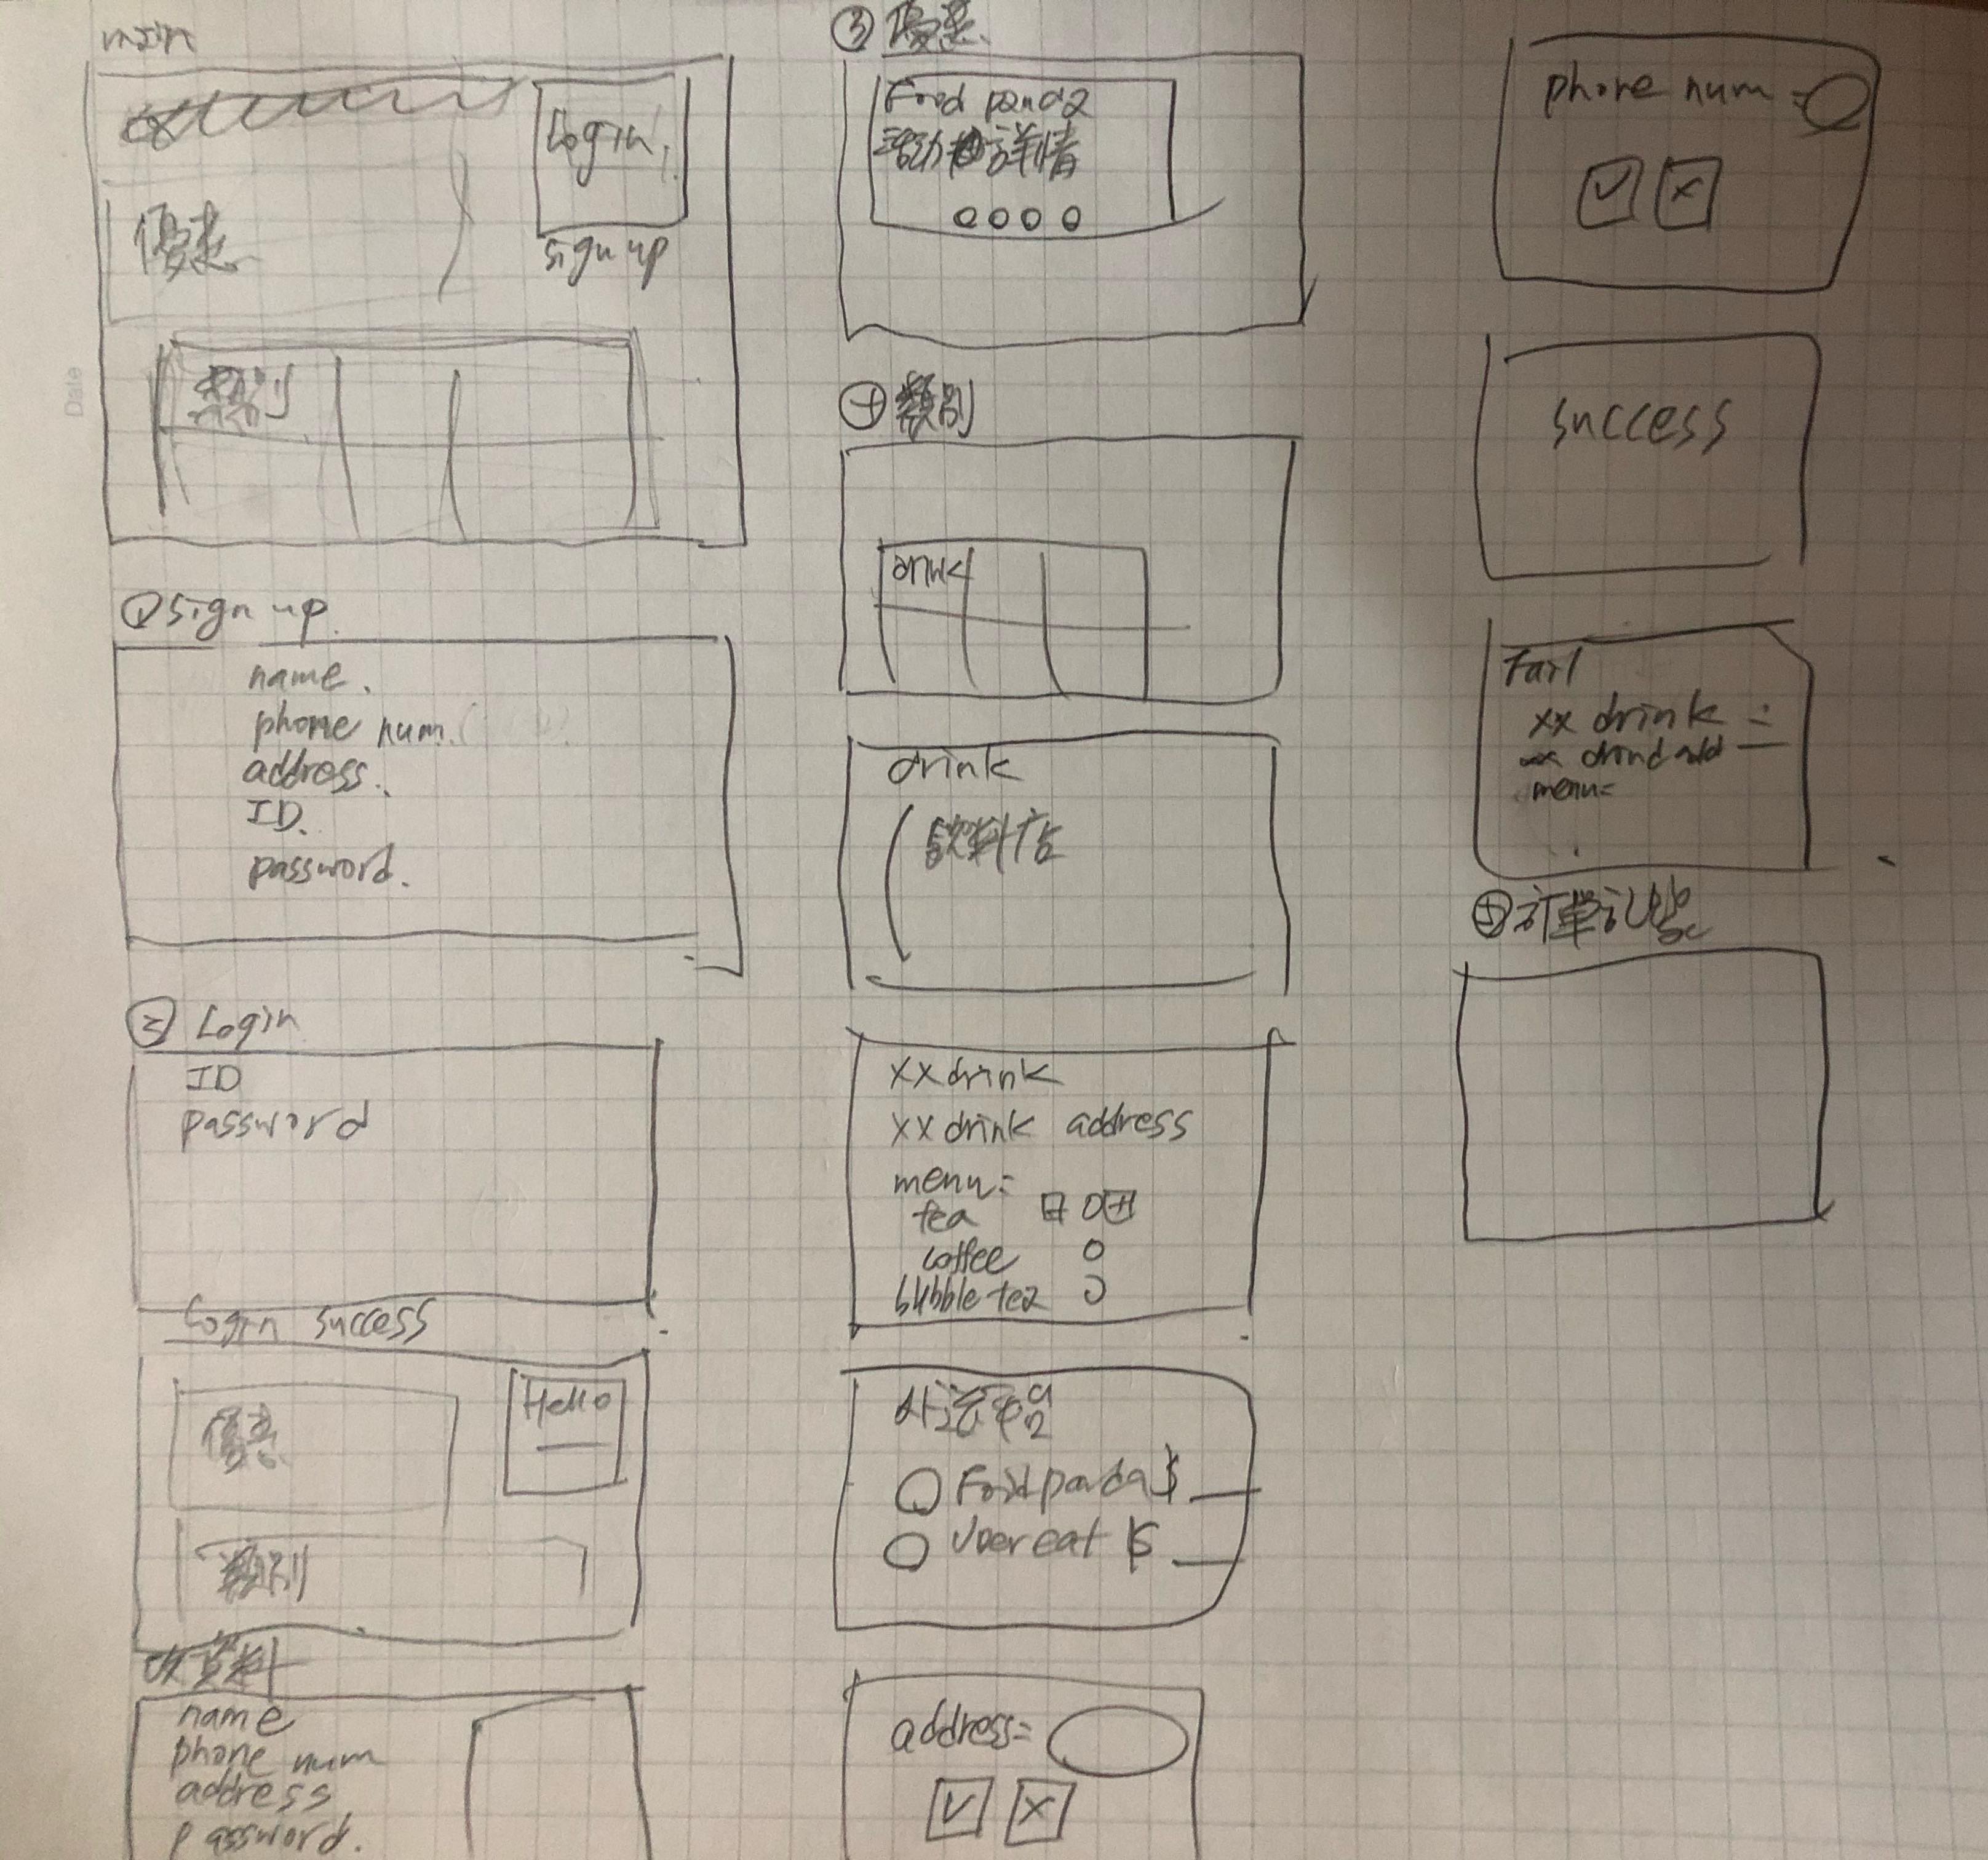 main
Login
sign up
優惠
類別
Date
① sign up
name.
phone num.
address.
ID.
password.
② Login
ID
password
Login success
優惠
Hello
類別
改資料
name
phone num
address
password.
③ 優惠
Food panda
活動 詳情
④ 類別
drink
drink
飲料店
xx drink
xx drink address
menu:
tea - 0 +
coffee 0
bubble tea 0
Foodpanda $
Uber eat $
address=
phone num =
success
Fail
xx drink =
menu=
⑤ 訂單記錄